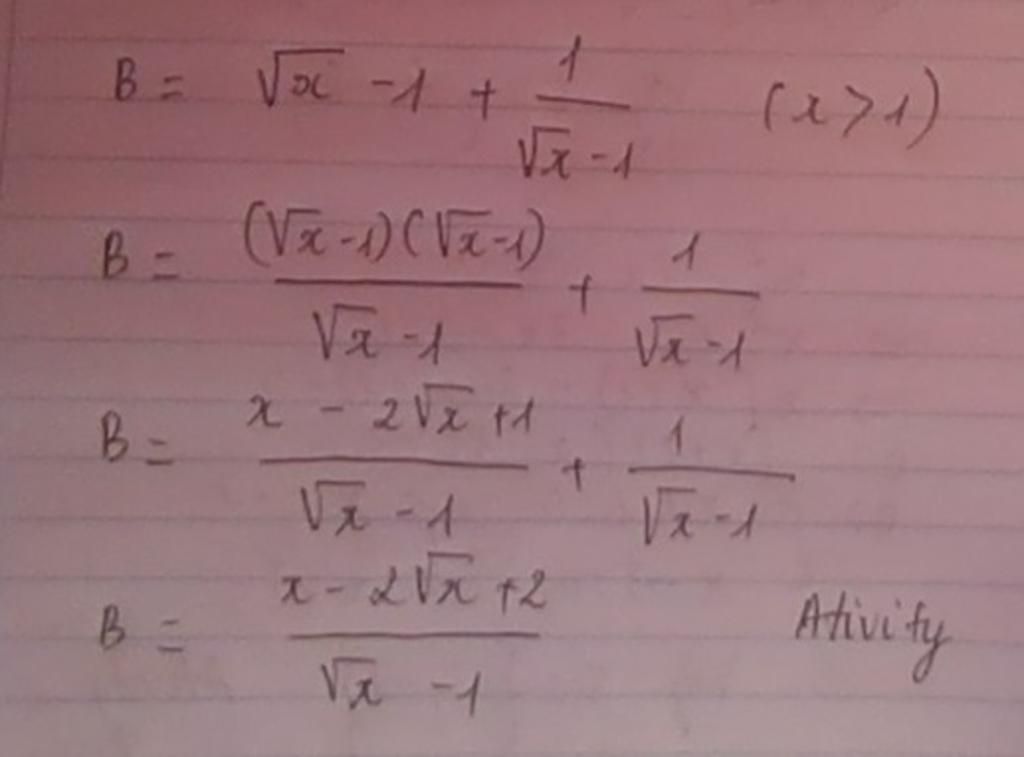 B = √x - 1 + 1/(√x - 1) (x > 1)
B = (√x - 1)(√x - 1)/(√x - 1) + 1/(√x - 1)
B = (x - 2√x + 1)/(√x - 1) + 1/(√x - 1)
B = (x - 2√x + 2)/(√x - 1) Ativity